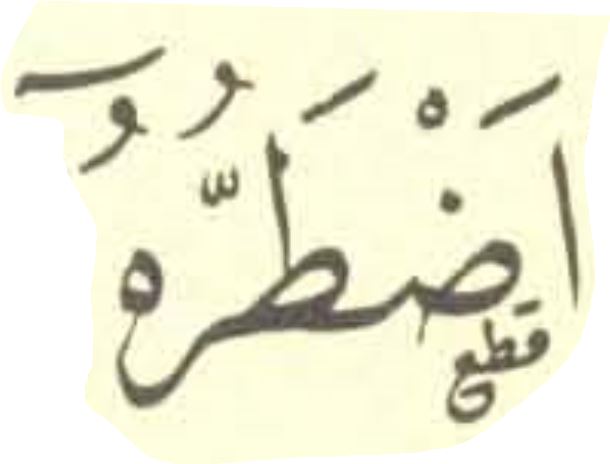 اَضْطَرُّهٗۤ
قطع